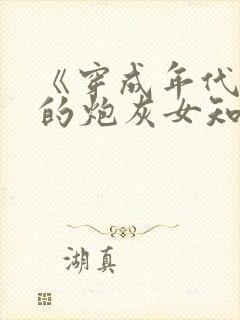 《穿成年代
的炮灰女知
湖真